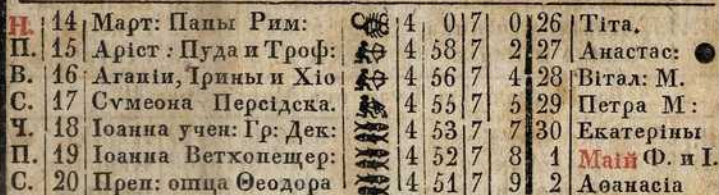 Н. 14 Март: Папы Рим: 4 0 7 0 26 Тіта.
П. 15 Аріст: Пуда и Троф: 4 58 7 2 27 Анастас:
В. 16 Агапіи, Ірины и Хіо 4 56 7 4 28 Вітал: М.
С. 17 Сѵмеона Персідска. 4 55 7 5 29 Петра М:
Ч. 18 Іоанна учен: Гр: Дек: 4 53 7 7 30 Екатеріны
П. 19 Іоанна Ветхопещер: 4 52 7 8 1 Маій Ф. и І.
С. 20 Преп: отца Ѳеодора 4 51 7 9 2 Аѳанасіа